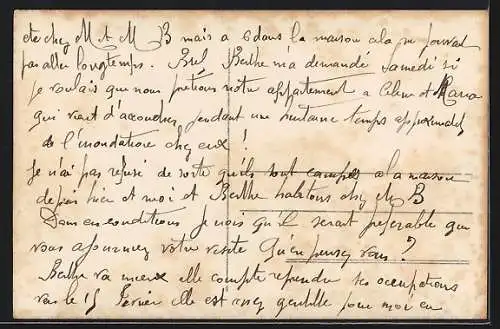 été chez M et M B mais a 6 dans la maison cela ne pouvait
pas aller longtemps. Bref Berthe m'a demandé samedi si
je voulais que nous prêtions notre appartement a et Maria
qui vient d'accoucher, pendant une huitaine temps approximatif
de l'inondation chez eux !
Je n'ai pas refusé de sorte qu'ils sont campés a la maison
depuis hier et moi et Berthe habitons chez Mr B
Dans ces conditions je crois qu'il serait préférable que
vous ajourniez votre visite Qu'en pensez vous ?
Berthe va mieux elle compte reprendre ses occupations
vers le 15 Février elle est assez gentille pour moi en